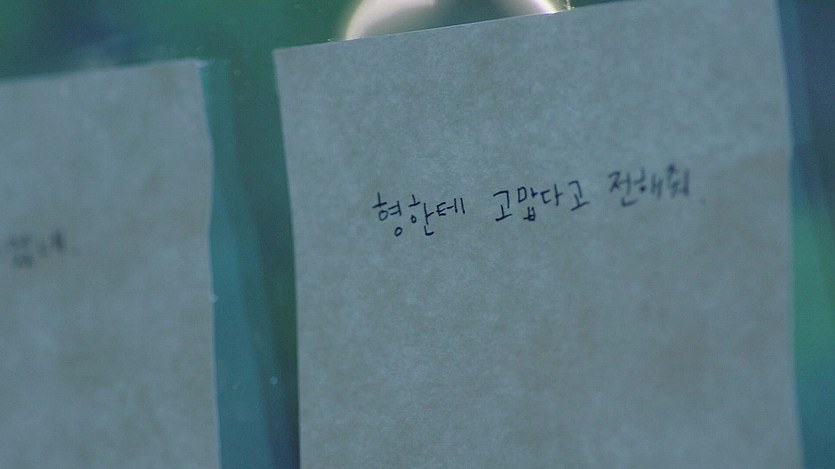 형한테 고맙다고 전해줘.